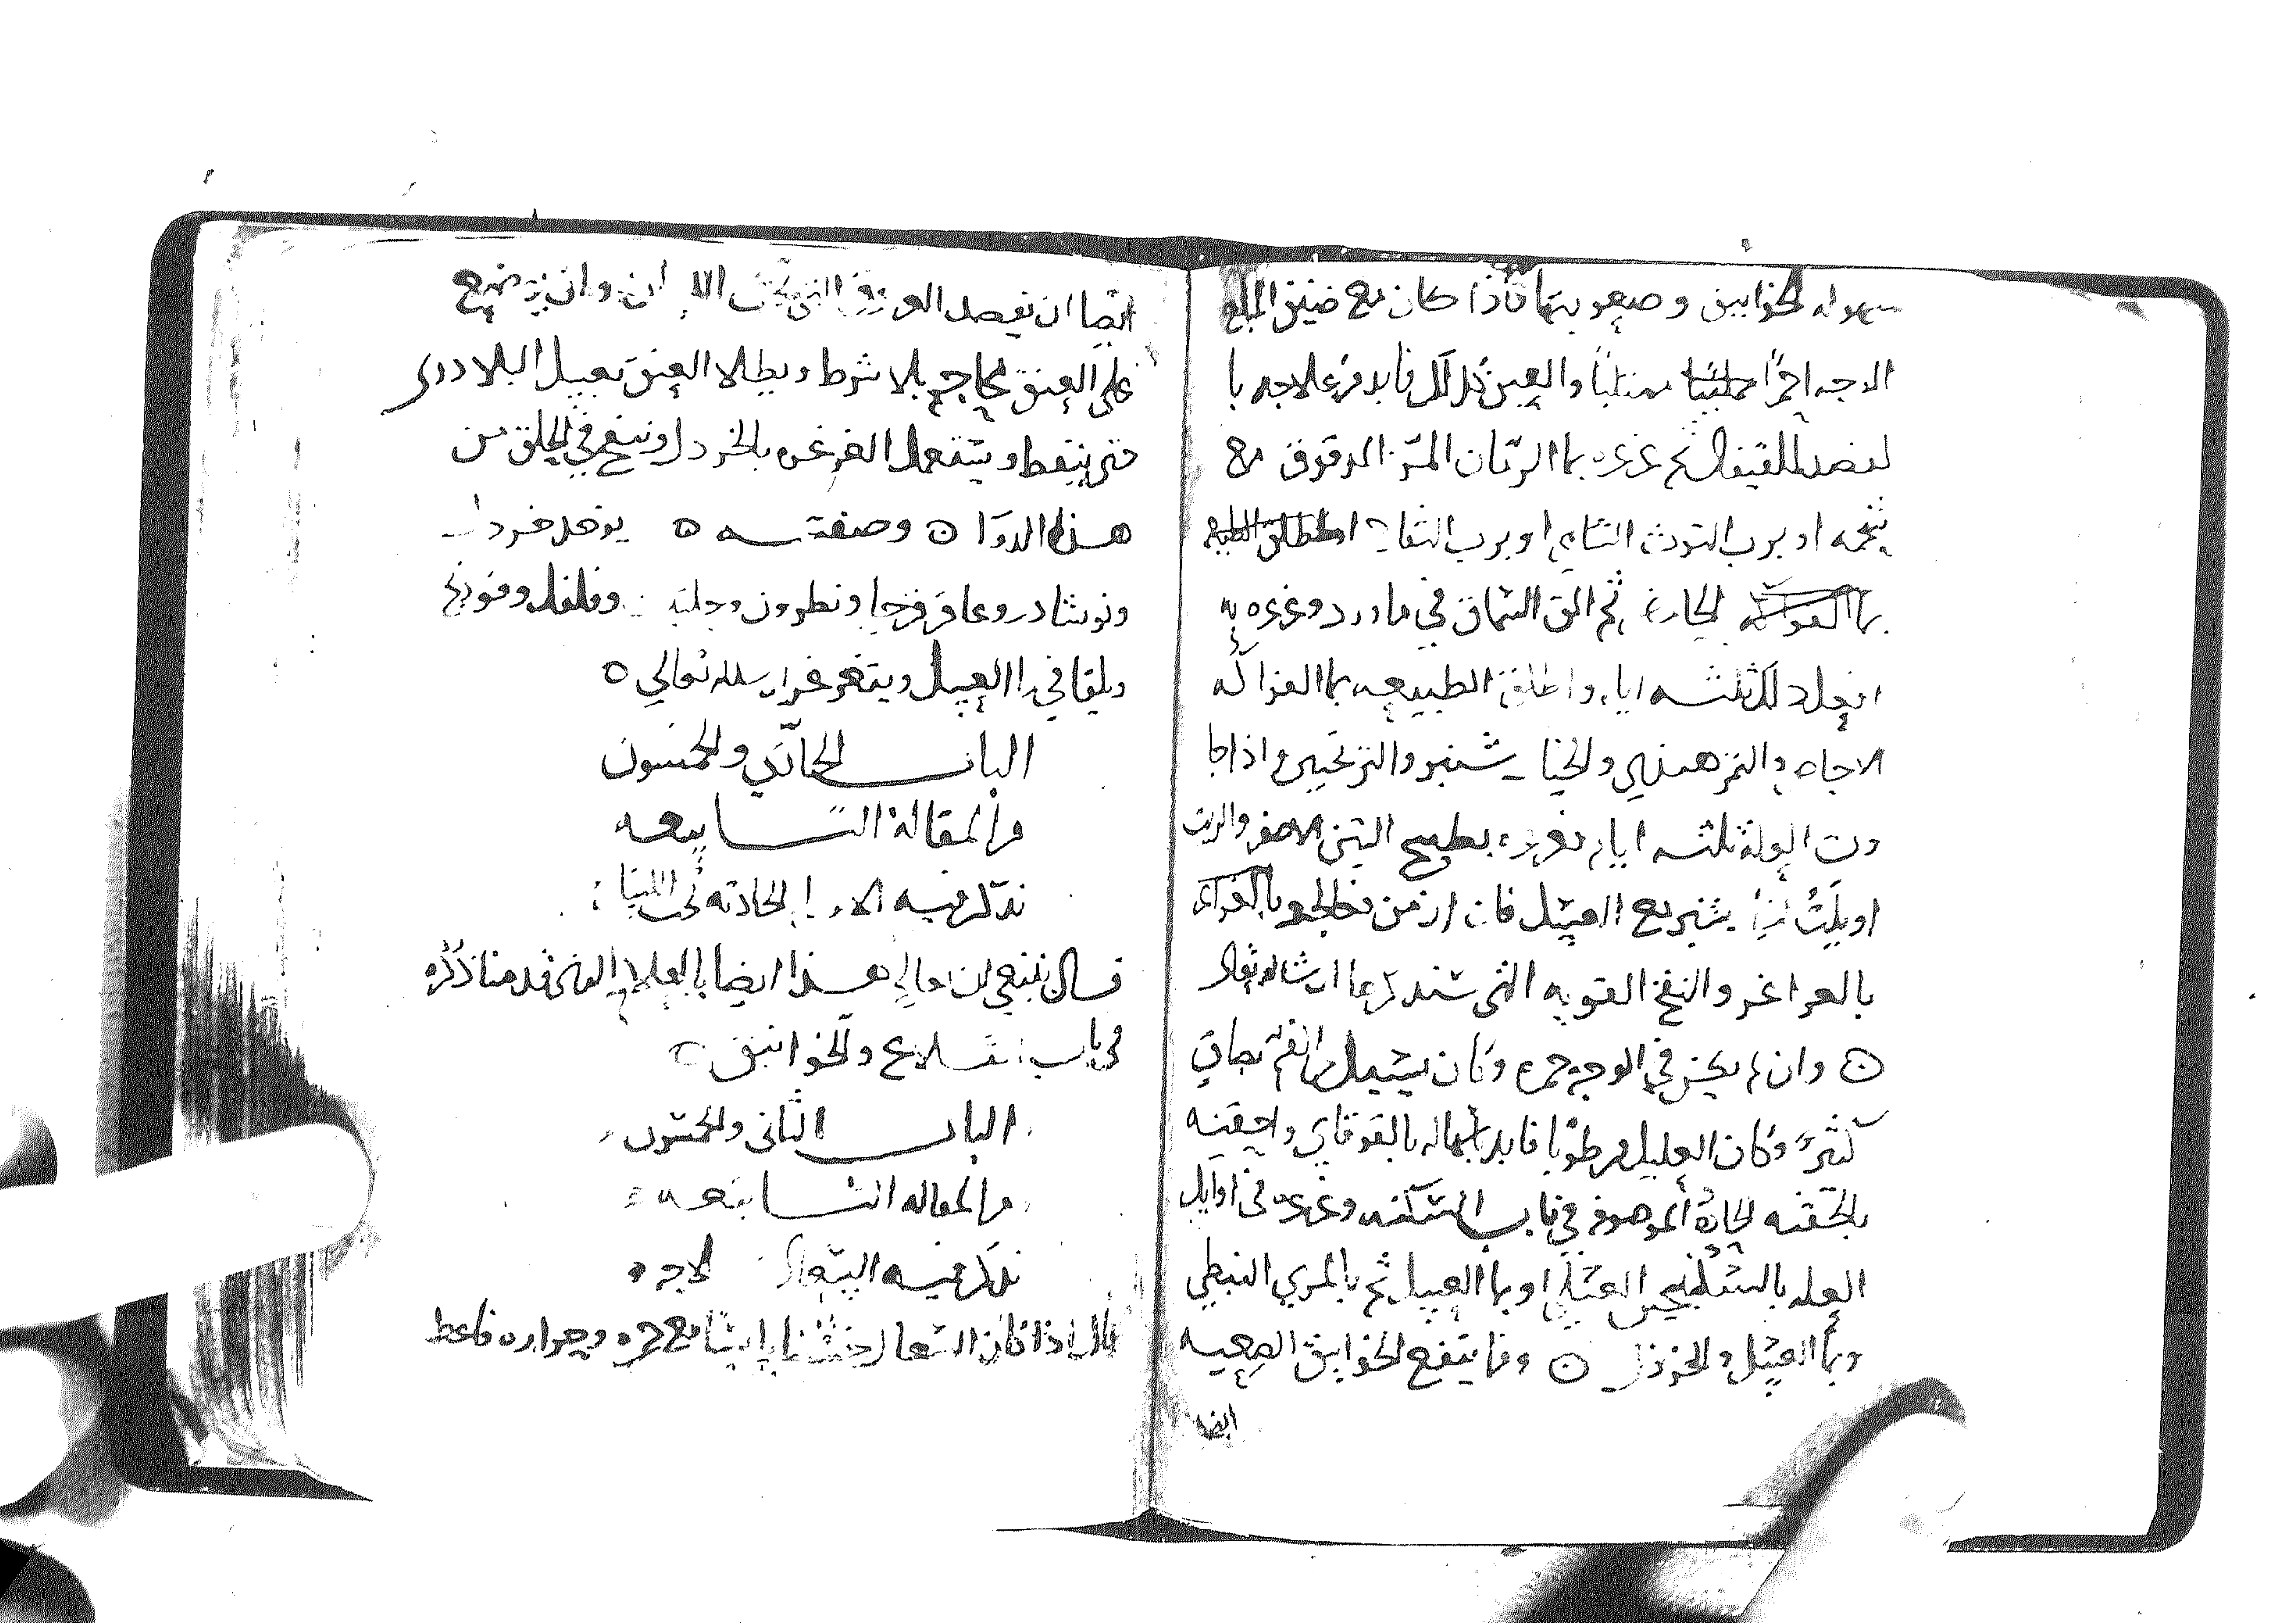 سهوله الخوانيق وصعوبتها فاذا كان مع ضيق المبلع
الوجه احمرًا ممتلئًا والعين كذلك فابدا في علاجه با
لفصد للقيفال ثم غرغره بما الرمان المز المدقوق مع
شحمه او برب التوت الشامي او برب التفاح
بما ثم الق السماق في ماورد وغرغره به
افعل ذلك ثلثه ايام واطلق الطبيعه بما الفواكه
الاجاص والتمر هندي والخيار شنبر والترنجبين واذا جا
وزت العلة ثلثه ايام فغرغره بطبيخ التين الاصفر والزبيب
او بلب خيار شنبر مع العسل فان ازمن فعالجه
بالغراغر والنفخ القويه التي سنذكرها ان شا الله تعالى
وان لم يكن في الوجه حمره وكان يسيل من الفم بصاق
كثير وكان العليل مرطوبا فابدا باسهاله بالقوقاي واحقنه
بالحقنه الحادة الموصوفه في باب السكته وغرغره في اوايل
العله بالسكنجبين العسلي او بما العسل ثم بالمري النبطي
وبما العسل والخردل وما ينفع الخوانيق الصعبه
ايضا
ايضا ان تفصد العروق التي تحت اللسان وان توضع
على العنق محاجم بلا شرط ويطلا العنق بعسل البلادر
حتى يتنفط ويستعمل الغرغره بالخردل وينفخ في الحلق من
هذا الدوا وصفته يوخذ خردل
ونوشادر وعاقرقرحا ونطرون وحلتيت وفلفل وفودنج
ويلقا في ما العسل ويتغرغر ان شا الله تعالى
الباب الحادي والخمسون
من المقالة السابعه
نذكر فيه الاورام الحادثه تحت اللسان
قال ينبغي ان يعالج هذا ايضا بالعلاج الذي قدمنا ذكره
في باب القلاع والخوانيق
الباب الثاني والخمسون
من المقاله السابعه
نذكر فيه السعال وعلاجه
قال اذا كان السعال خشنا يابسا مع حمره وحراره فاعط